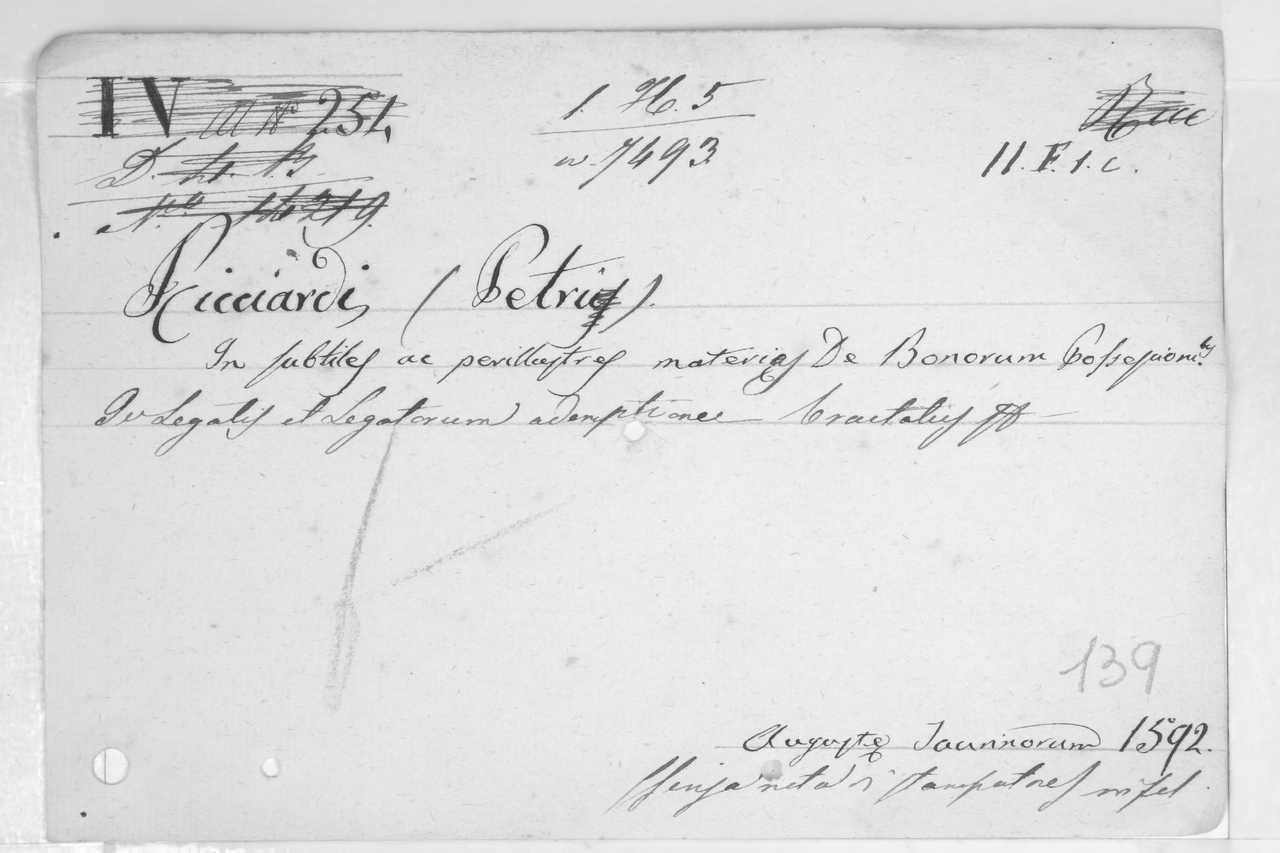 IV 251.
1 H. 5
n 7493
11. F. 1. c.
Ricciardi (Petri).
In subtiles ac perillustres materias De Bonorum Possessionibs
De Legatis et Legatorum ademptione tractatus
139
Augustę Taurinorum 1592.
Senza nota di stampatore in fol.